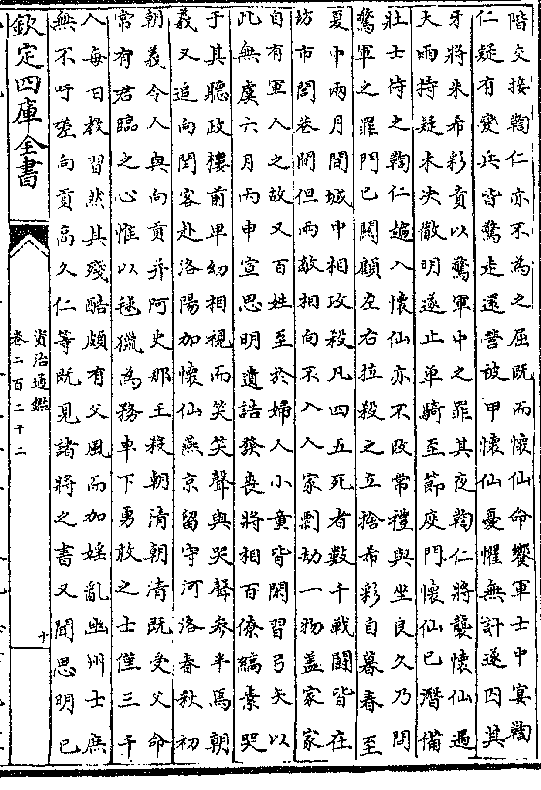 階交接鞠仁亦不為之屈既而懷仙命饗軍士中宴鞠
仁疑有變兵皆驚走還營被甲懷仙憂懼無計遂囚其
牙將朱希彩責以驚軍中之罪其夜鞠仁將襲懷仙遇
大雨持疑未決徹明遂止單騎至節度門懷仙已潛備
壯士待之鞠仁趨入懷仙亦不改常禮與坐良久乃問
驚軍之罪門已闗顧左右拉殺之立捨希彩自暮春至
夏中兩月間城中相攻殺凡四五死者數千戰鬬皆在
坊市閭巷間但兩敵相向不入人家剽劫一物葢家家
自有軍人之故又百姓至於婦人小童皆閑習弓矢以
此無虞六月丙申宣思明遺詔發喪將相百僚縞素哭
于其聽政樓前卑幼相視而笑笑聲與哭聲參半焉朝
義又追向閏客赴洛陽加懷仙燕京留守河洛春秋初
朝義令人與向貢并阿史那王殺朝清朝清既受父命
常有君臨之心惟以毬獵為務車下勇敢之士僅三千
人每日教習然其殘酷頗有父風而加婬亂幽州士庶
無不吁嗟向貢高久仁等既見諸將之書又聞思明已
欽定四庫全書
資治通鑑
卷二百二十二
十